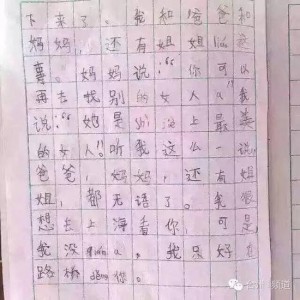 下来了。我和爸爸和
妈妈，还有姐姐liáo这
事。妈妈说：“你可以
再去找别的女人a”我
说：“她是shì上最美
的女人！听我这么一说，
爸爸，妈妈，还有姐
姐，都无语了。我很
想去上海看你，可是，
我没qián。我只好在
路桥děng你。
频道